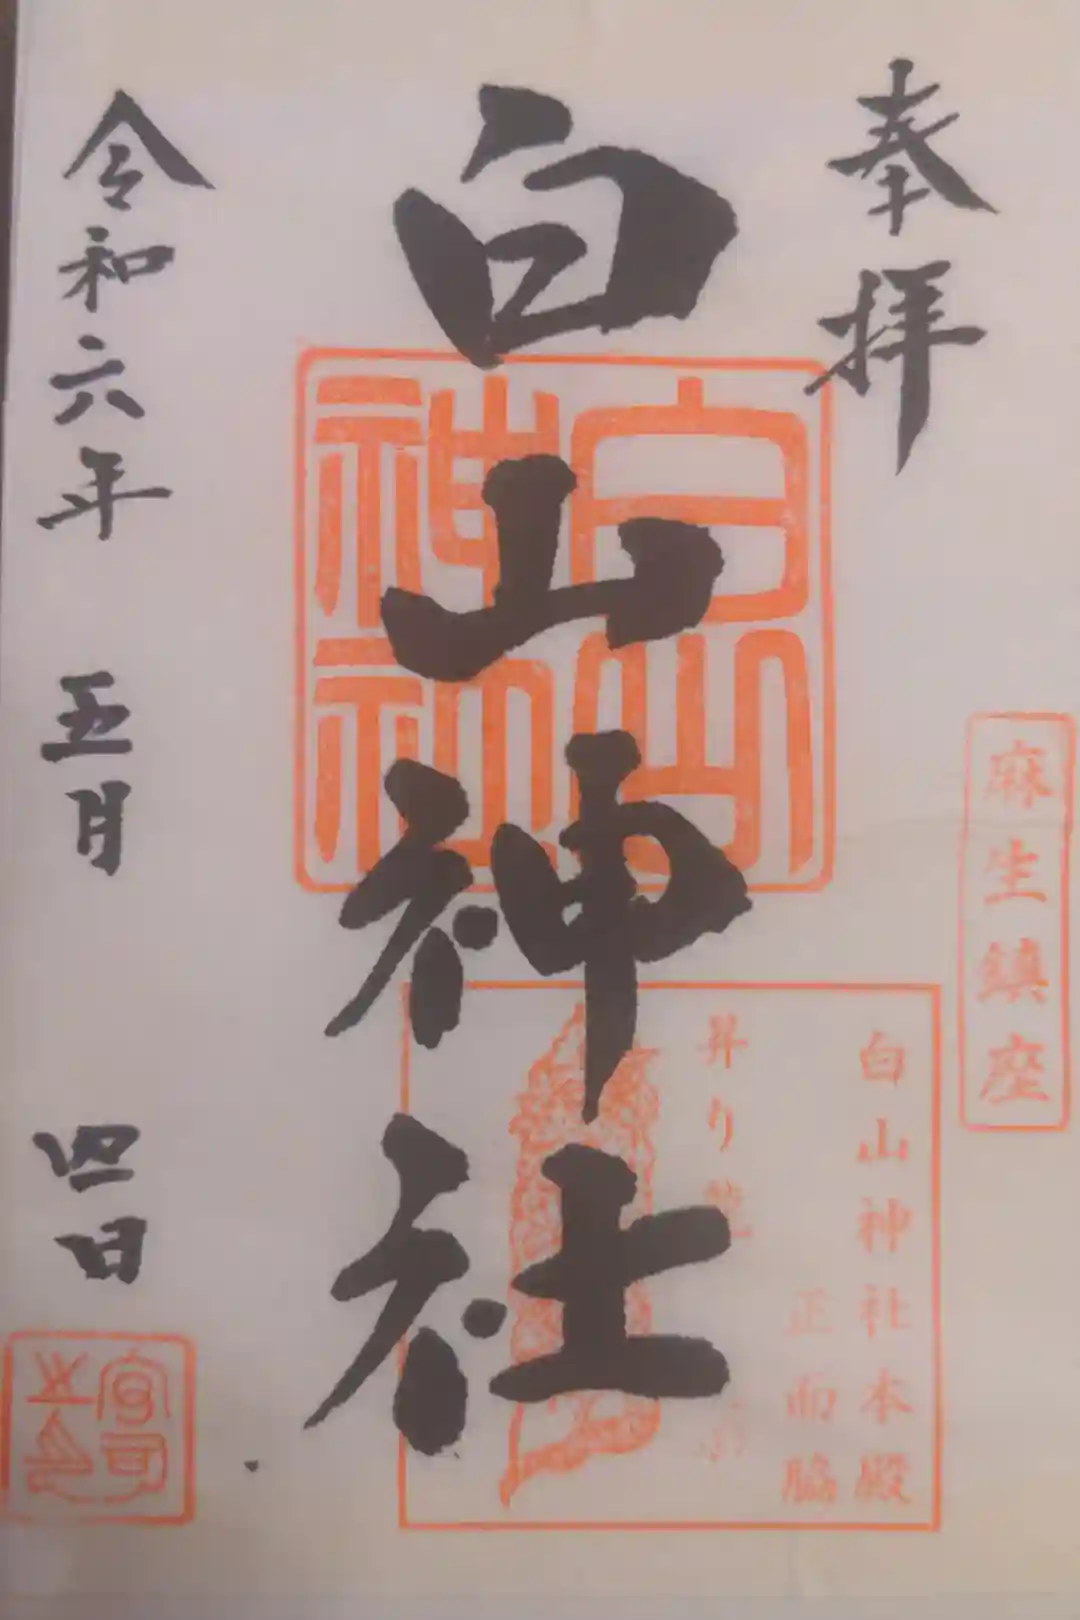 奉拝
麻生鎮座
白山神社
白山神社
白山神社本殿
正面脇
昇り龍
令和六年 五月 四日
宮司之印